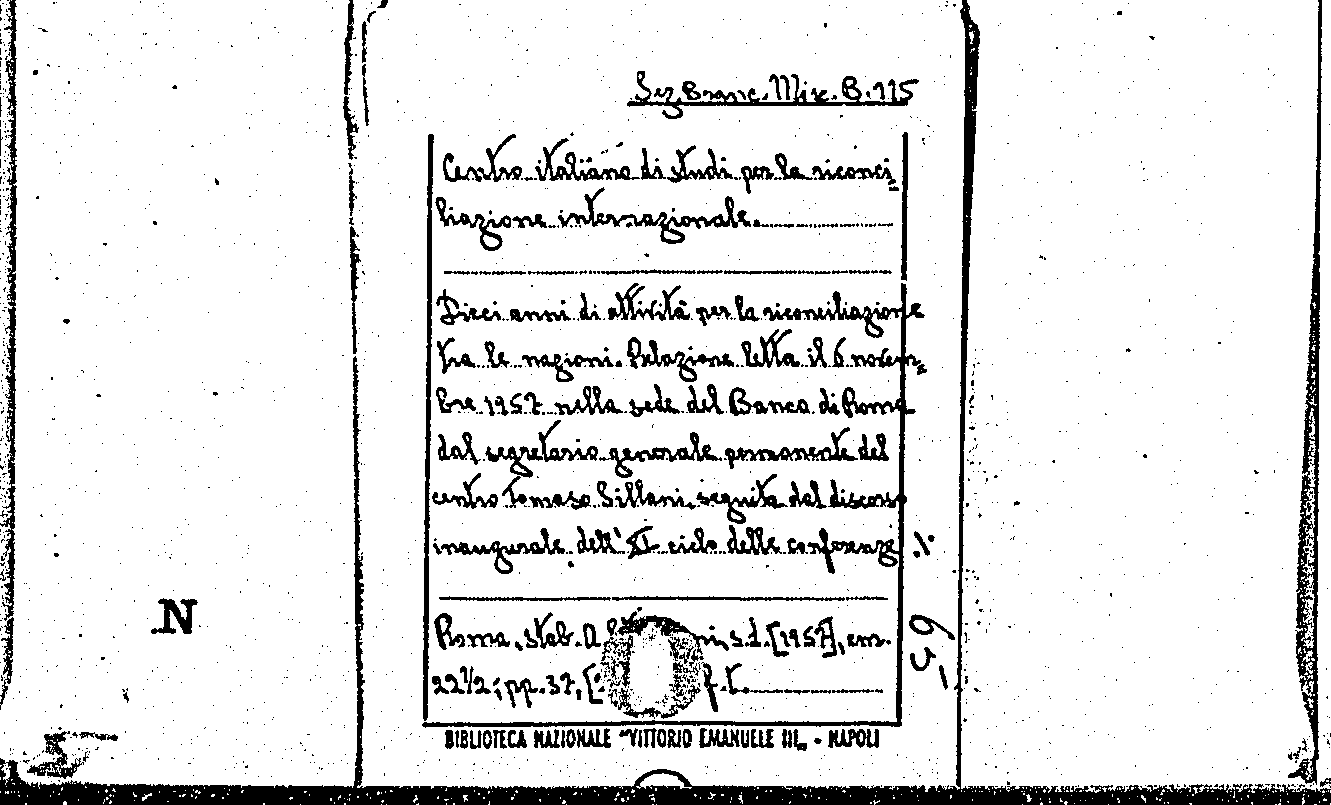 Sez. Branc. Misc. B. 115
Centro italiano di studi per la riconci=
liazione internazionale.
Dieci anni di attività per la riconciliazione
tra le nazioni. Relazione letta il 6 novem=
bre 1957 nella sede del Banco di Roma
dal segretario generale permanente del
centro Tomaso Sillani, seguita dal discorso
inaugurale dell'XI ciclo delle conferenze ./.
Roma, stab. s.d. [1957], cm.
22 1/2; pp. 37, f.t.
BIBLIOTECA NAZIONALE "VITTORIO EMANUELE III„ - NAPOLI
N